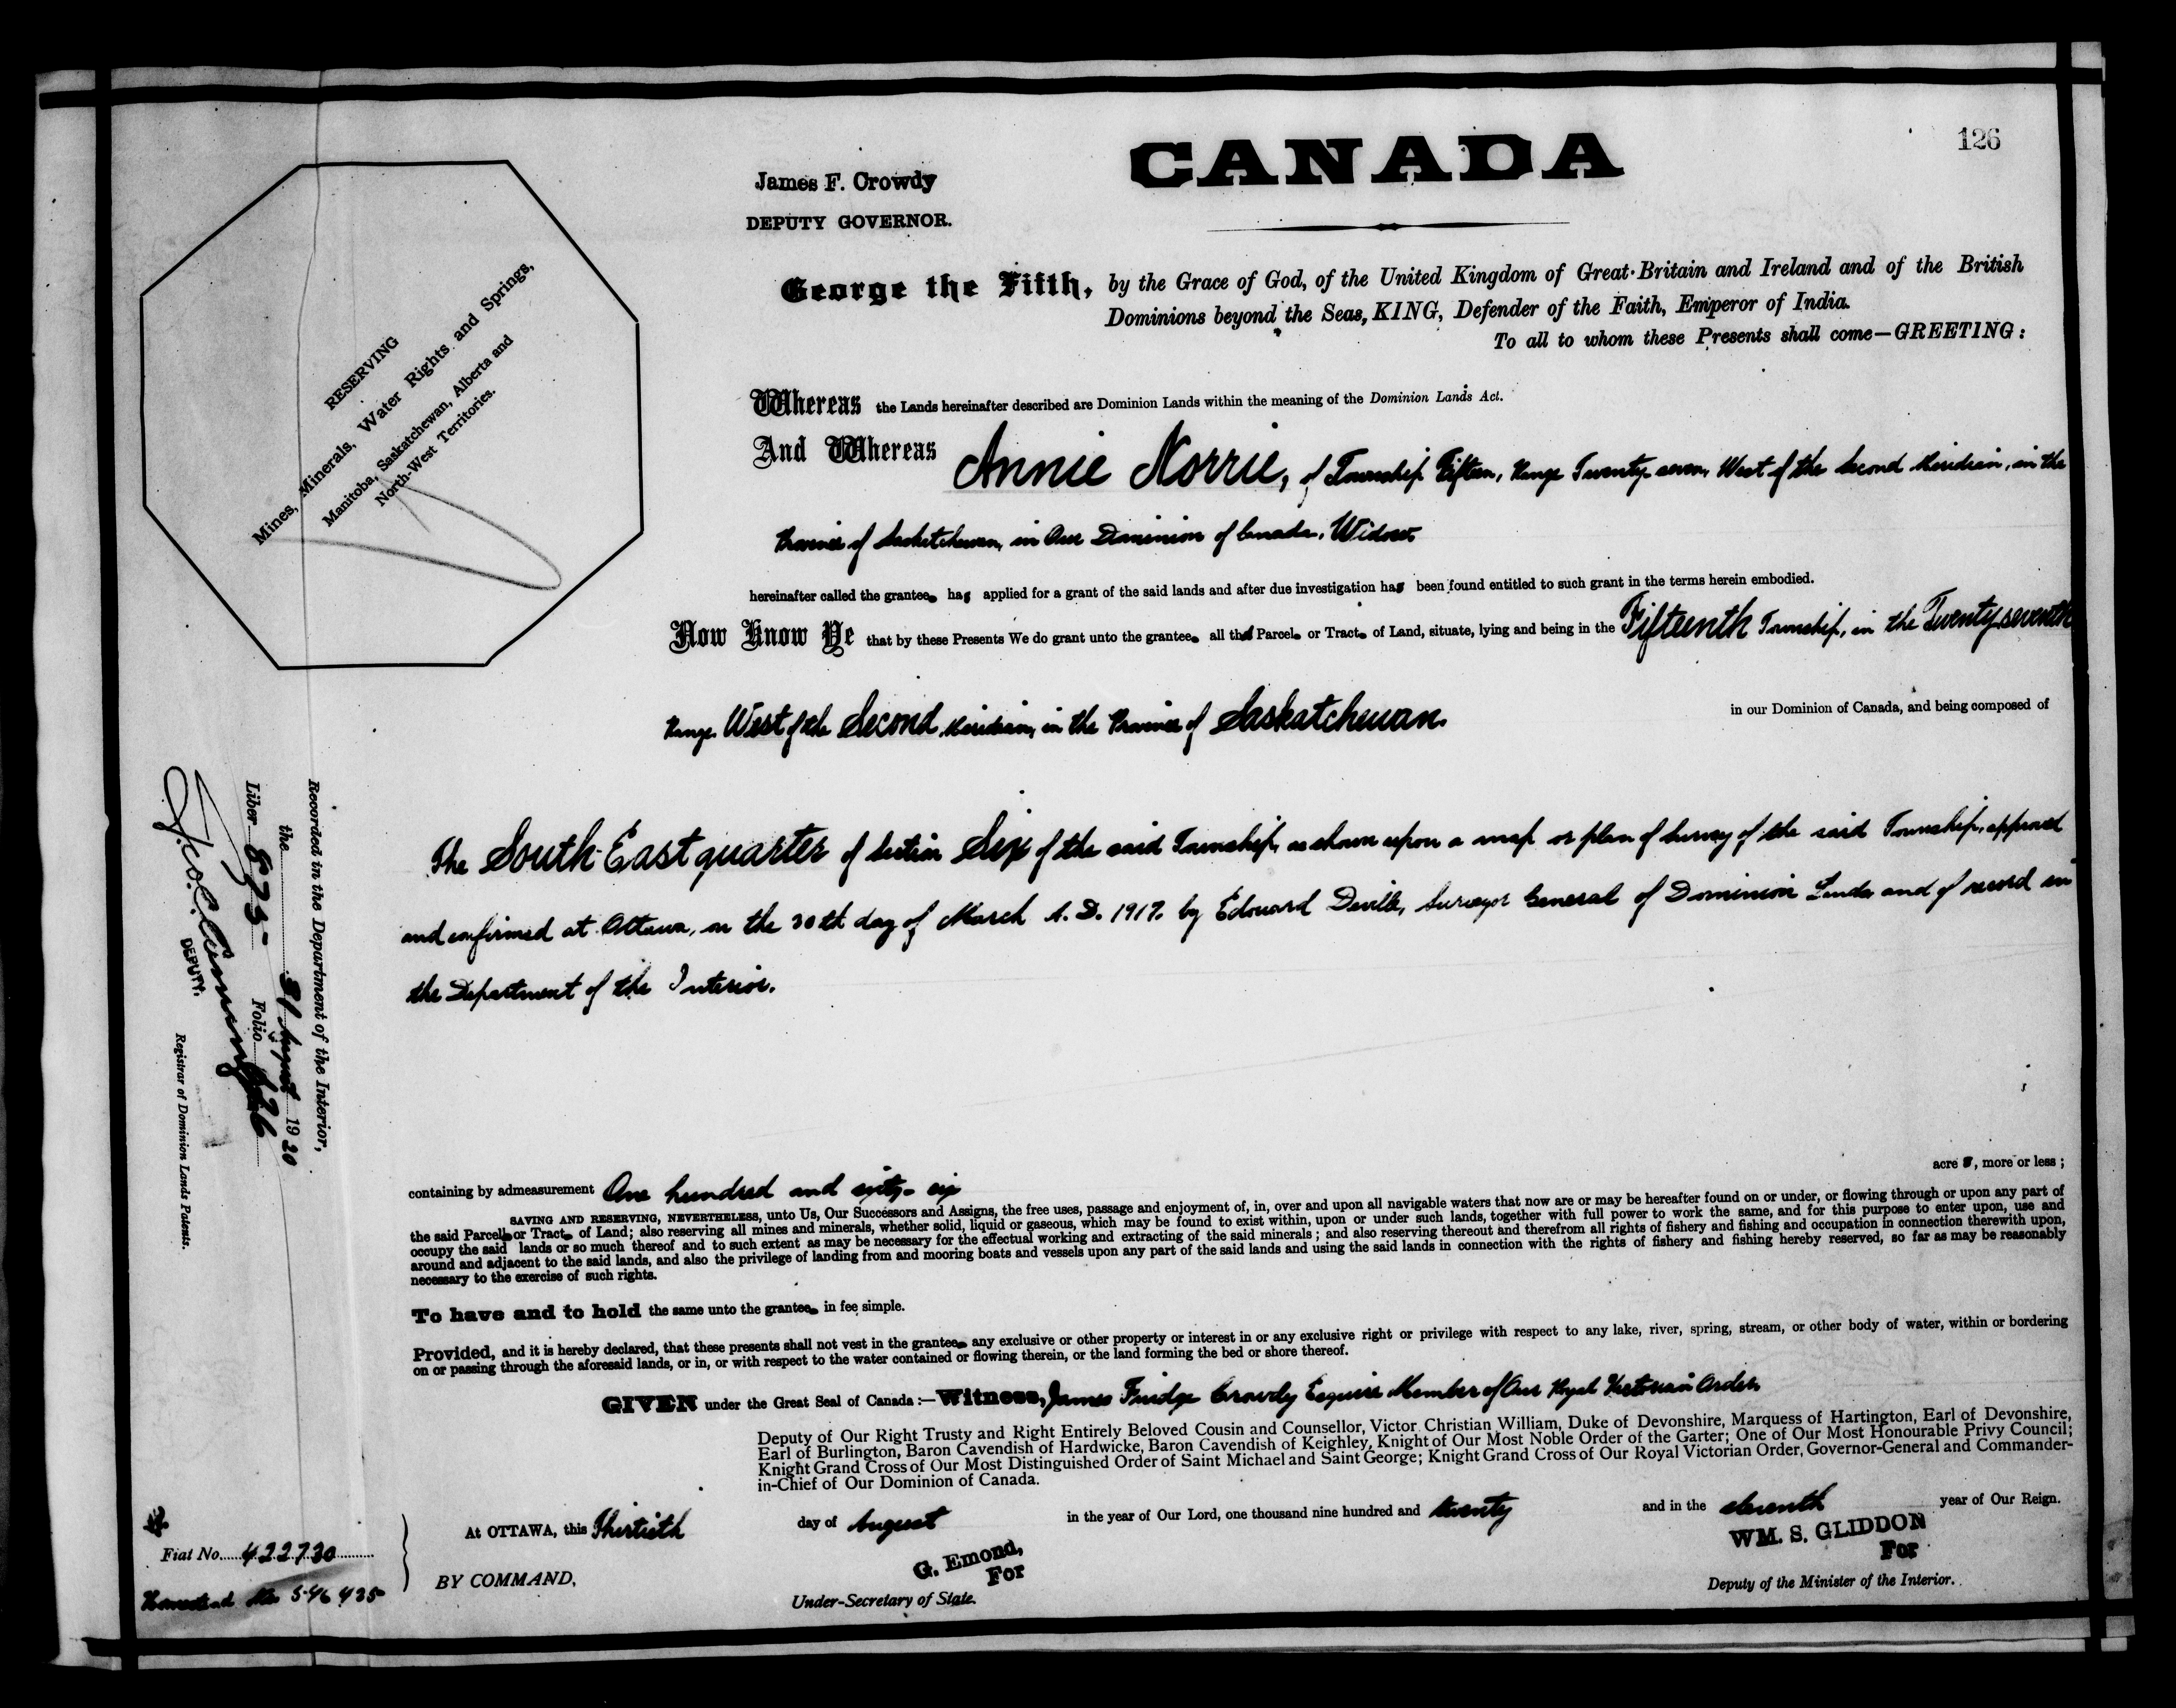 126
CANADA
James F. Crowdy
DEPUTY GOVERNOR.
George the Fifth, by the Grace of God, of the United Kingdom of Great Britain and Ireland and of the British
Dominions beyond the Seas, KING, Defender of the Faith, Emperor of India.
To all to whom these Presents shall come—GREETING:
RESERVING
Mines, Minerals, Water Rights and Springs,
Manitoba, Saskatchewan, Alberta and
North-West Territories.
Whereas the Lands hereinafter described are Dominion Lands within the meaning of the Dominion Lands Act.
And Whereas Annie Norrie, of Township Fifteen, Range Twenty-seven, West of the Second Meridian, in the
Province of Saskatchewan, in Our Dominion of Canada, Widow
hereinafter called the grantee has applied for a grant of the said lands and after due investigation has been found entitled to such grant in the terms herein embodied.
Now Know Ye that by these Presents We do grant unto the grantee all that Parcel or Tract of Land, situate, lying and being in the Fifteenth Township, in the Twenty-seventh
Range West of the Second Meridian, in the Province of Saskatchewan. in our Dominion of Canada, and being composed of
The South East quarter of Section Six of the said Township, as shown upon a map or plan of Survey of the said Township, approved
and confirmed at Ottawa, on the 30th day of March A.D. 1917. by Edouard Deville, Surveyor General of Dominion Lands and of record in
the Department of the Interior.
Recorded in the Department of the Interior,
the 31 August 1920
Liber 875 Folio 126
DEPUTY.
Registrar of Dominion Lands Patents.
acres, more or less;
containing by admeasurement One hundred and sixty-six
SAVING AND RESERVING, NEVERTHELESS, unto Us, Our Successors and Assigns, the free uses, passage and enjoyment of, in, over and upon all navigable waters that now are or may be hereafter found on or under, or flowing through or upon any part of
the said Parcel or Tract of Land; also reserving all mines and minerals, whether solid, liquid or gaseous, which may be found to exist within, upon or under such lands, together with full power to work the same, and for this purpose to enter upon, use and
occupy the said lands or so much thereof and to such extent as may be necessary for the effectual working and extracting of the said minerals; and also reserving thereout and therefrom all rights of fishery and fishing and occupation in connection therewith upon,
around and adjacent to the said lands, and also the privilege of landing from and mooring boats and vessels upon any part of the said lands and using the said lands in connection with the rights of fishery and fishing hereby reserved, so far as may be reasonably
necessary to the exercise of such rights.
To have and to hold the same unto the grantee in fee simple.
Provided, and it is hereby declared, that these presents shall not vest in the grantee any exclusive or other property or interest in or any exclusive right or privilege with respect to any lake, river, spring, stream, or other body of water, within or bordering
on or passing through the aforesaid lands, or in, or with respect to the water contained or flowing therein, or the land forming the bed or shore thereof.
GIVEN under the Great Seal of Canada:—Witness, James Fuidge Crowdy Esquire Member of Our Royal Victorian Order,
Deputy of Our Right Trusty and Right Entirely Beloved Cousin and Counsellor, Victor Christian William, Duke of Devonshire, Marquess of Hartington, Earl of Devonshire,
Earl of Burlington, Baron Cavendish of Hardwicke, Baron Cavendish of Keighley, Knight of Our Most Noble Order of the Garter; One of Our Most Honourable Privy Council;
Knight Grand Cross of Our Most Distinguished Order of Saint Michael and Saint George; Knight Grand Cross of Our Royal Victorian Order, Governor-General and Commander-
in-Chief of Our Dominion of Canada.
At OTTAWA, this Thirtieth day of August in the year of Our Lord, one thousand nine hundred and twenty and in the eleventh year of Our Reign.
Fiat No. 422730
Homestead No. 546435
BY COMMAND,
G. Emond,
For
Under-Secretary of State.
WM. S. GLIDDON
For
Deputy of the Minister of the Interior.